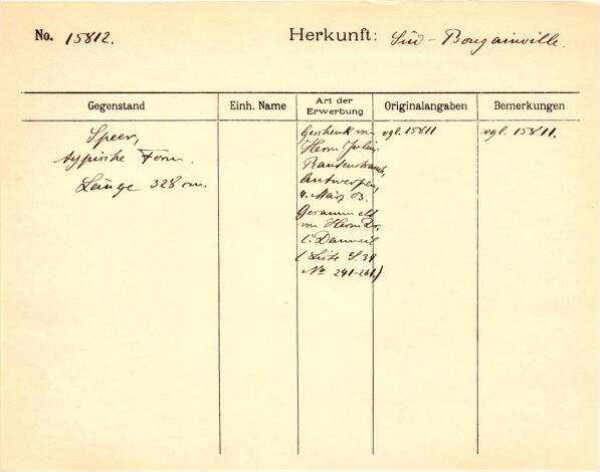 No. 15812.
Herkunft: Süd-Bougainville.
Gegenstand
Speer,
typische Form.
Länge 328 cm.
Einh. Name
Art der
Erwerbung
Geschenk von
Herrn Julius
Rautenstrauch,
Antwerpen,
4. März 03.
Gesammelt
von Herrn Dr.
C. Danneil
(Liste S. 38
No 241-261.)
Originalangaben
vgl. 15811
Bemerkungen
vgl. 15811.